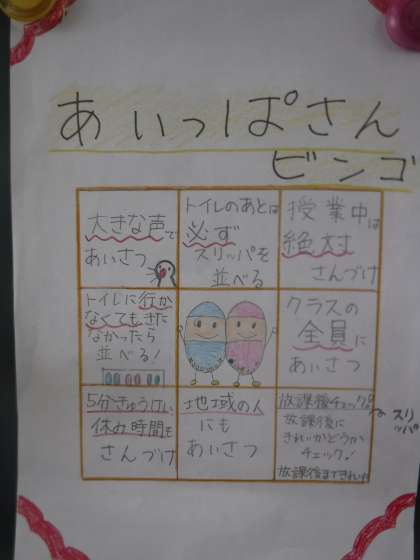 あいっぱさん
ビンゴ
大きな声で
あいさつ
トイレのあとは
必ず
スリッパを
並べる
授業中は
絶対
さんづけ
トイレに行か
なくてもきた
なかったら
並べる!
クラスの
全員に
あいさつ
5分きゅうけい
休み時間も
さんづけ
地域の人
にも
あいさつ
放課後チェック!
放課後に
きれいかどうか
チェック!
放課後まできれいに
スリッパ